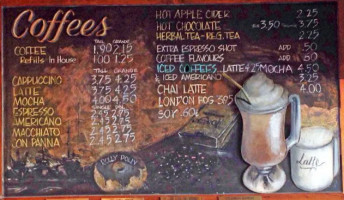 Coffees
TALL GRANDE
COFFEE 1.90 2.15
Refills In House 1.00 1.25
TALL GRANDE
CAPPUCCINO 3.75 4.25
LATTE 3.75 4.25
MOCHA 4.00 4.50
ESPRESSO
AMERICANO 2.45 2.75
MACCHIATO 2.45 2.75
CON PANNA 2.45 2.75
HOT APPLE CIDER 2.25
HOT CHOCOLATE 3.50 3.75
HERBAL TEA - REG. TEA 2.25
EXTRA ESPRESSO SHOT ADD .50
COFFEE FLAVOURS ADD .50
ICED COFFEES LATTE 4.25 MOCHA 4.50
ICED AMERICANO 3.25
CHAI LATTE 4.00
LONDON FOG 3.95
SOY .60¢
ROLLY POLLY
Latte